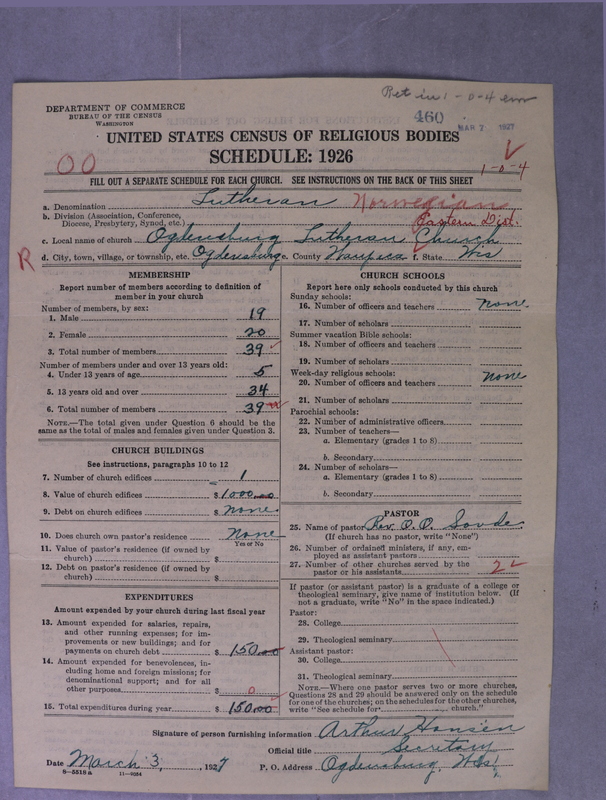 Ret in 1-0-4
DEPARTMENT OF COMMERCE
BUREAU OF THE CENSUS
WASHINGTON
460
MAR 7 1927
UNITED STATES CENSUS OF RELIGIOUS BODIES
SCHEDULE: 1926
00
1-0-4
FILL OUT A SEPARATE SCHEDULE FOR EACH CHURCH. SEE INSTRUCTIONS ON THE BACK OF THIS SHEET
a. Denomination Lutheran Norwegian
b. Division (Association, Conference, Diocese, Presbytery, Synod, etc.) Eastern Dist.
c. Local name of church Ogdensburg Lutheran Church
R
d. City, town, village, or township, etc. Ogdensburg e. County Waupaca f. State Wis
MEMBERSHIP
Report number of members according to definition of
member in your church
Number of members, by sex:
1. Male 19
2. Female 20
3. Total number of members 39
Number of members under and over 13 years old:
4. Under 13 years of age 5
5. 13 years old and over 34
6. Total number of members 39
NOTE.—The total given under Question 6 should be
same as the total of males and females given under Question 3.
CHURCH BUILDINGS
See instructions, paragraphs 10 to 12
7. Number of church edifices 1
8. Value of church edifices $1000.00
9. Debt on church edifices $ none
10. Does church own pastor's residence? none
Yes or No
11. Value of pastor's residence (if owned by
church) $
12. Debt on pastor's residence (if owned by
church) $
EXPENDITURES
Amount expended by your church during last fiscal year
13. Amount expended for salaries, repairs,
and other running expenses; for im-
provements or new buildings; and for
payments on church debt $150.00
14. Amount expended for benevolences, in-
cluding home and foreign missions; for
denominational support; and for all
other purposes $ 0
15. Total expenditures during year $150.00
CHURCH SCHOOLS
Report here only schools conducted by this church
Sunday schools:
16. Number of officers and teachers none
17. Number of scholars
Summer vacation Bible schools:
18. Number of officers and teachers
19. Number of scholars
Week-day religious schools:
20. Number of officers and teachers none
21. Number of scholars
Parochial schools:
22. Number of administrative officers
23. Number of teachers—
a. Elementary (grades 1 to 8)
b. Secondary
24. Number of scholars—
a. Elementary (grades 1 to 8)
b. Secondary
PASTOR
25. Name of pastor Rev. O. O. Sovde
(If church has no pastor, write "None")
26. Number of ordained ministers, if any, em-
ployed as assistant pastors
27. Number of other churches served by the
pastor or his assistants 2
If pastor (or assistant pastor) is a graduate of a college or
theological seminary, give name of institution below. (If
not a graduate, write "No" in the space indicated.)
Pastor:
28. College
29. Theological seminary
Assistant pastor:
30. College
31. Theological seminary
NOTE.—Where one pastor serves two or more churches,
Questions 28 and 29 should be answered only on the schedule
for one of the churches; on the schedules for the other churches,
write "See schedule for church."
Signature of person furnishing information Arthur Hansen
Official title Secretary
Date March 3, 1927 P. O. Address Ogdensburg, Wis.
8—5518 a 11—9224